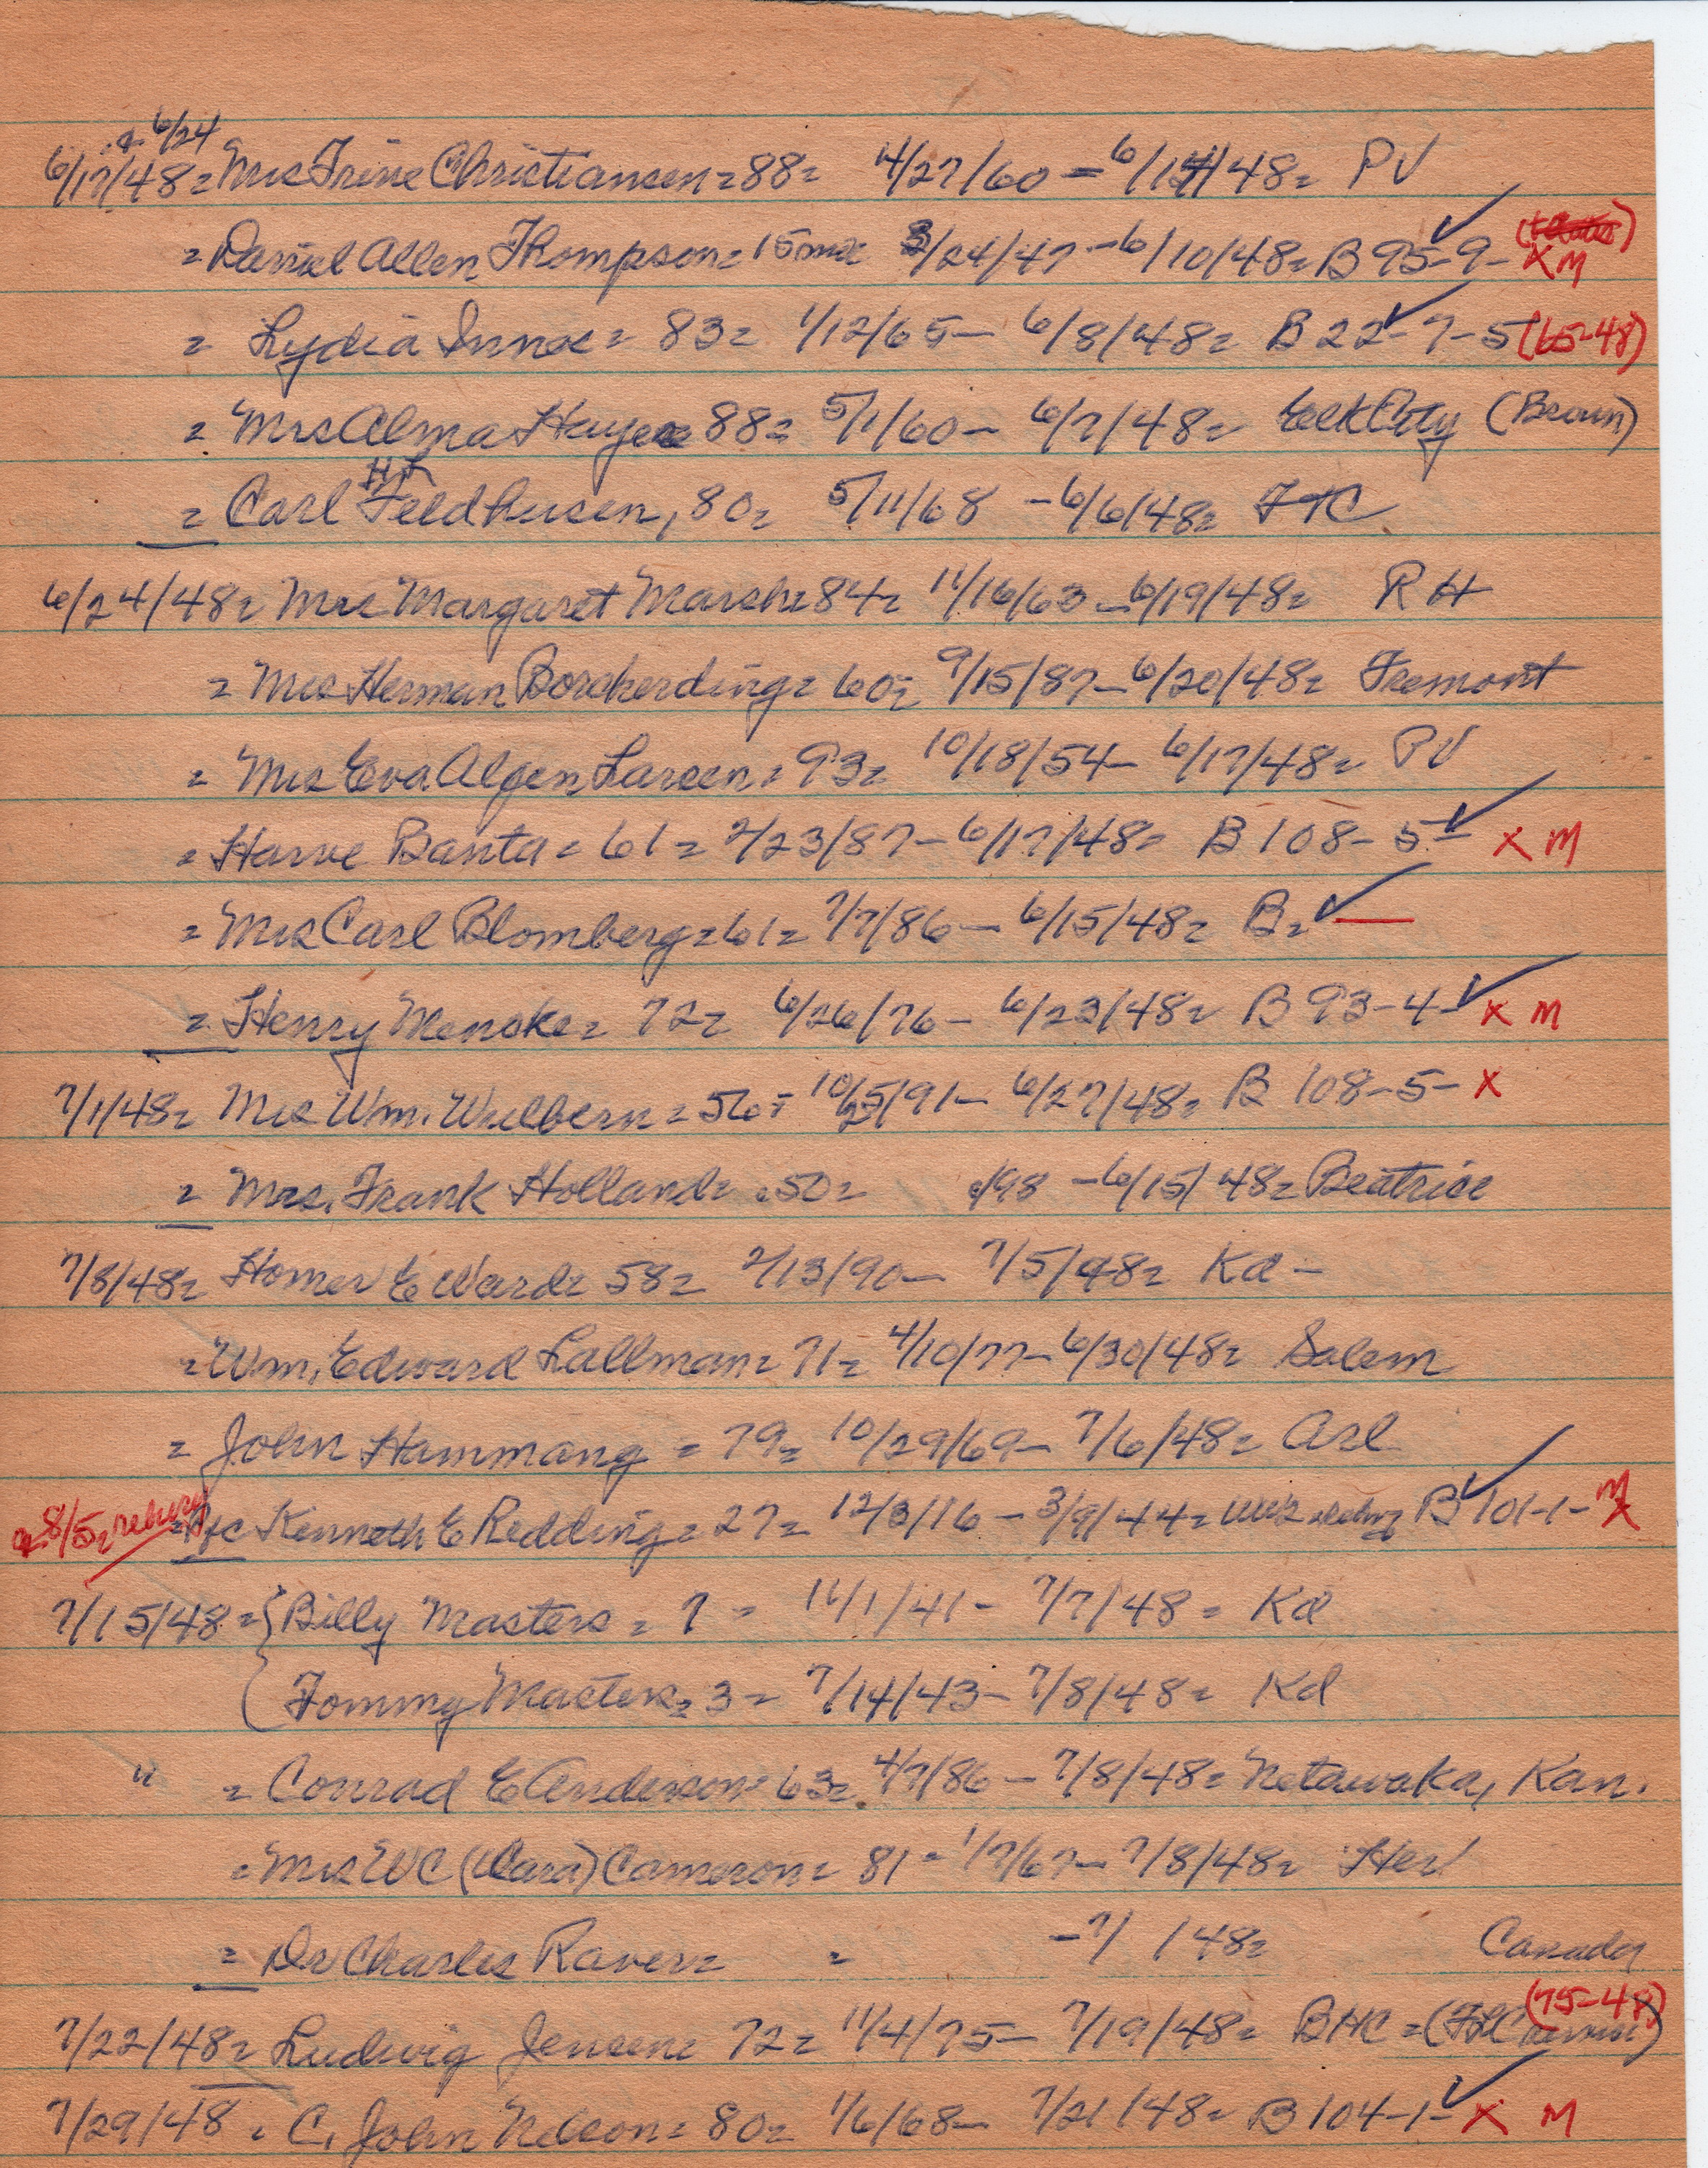 & 6/24
6/17/48 = Mrs Trine Christiansen = 88 = 4/27/60 - 6/14/48 = PV
= Daniel Allen Thompson = 15 mos 3/24/47 - 6/10/48 = B 95-9- ✓ X M
= Lydia Innes = 83 = 1/12/65 - 6/8/48 = B 22-7-5 ✓ (65-48)
= Mrs Alma Hayes 88 = 5/1/60 - 6/7/48 = Elk City (Brown)
HF
= Carl Feldhusen, 80 = 5/11/68 - 6/6/48 = FTC
6/24/48 = Mrs Margaret Marsh = 84 = 11/16/63 - 6/19/48 = RH
= Mrs Herman Borcherding = 60 = 9/15/87 - 6/20/48 = Fremont
= Mrs Eva Algen Larsen = 93 = 10/18/54 - 6/17/48 = PV
= Harve Banta = 61 = 2/23/87 - 6/17/48 = B 108-5- ✓ X M
= Mrs Carl Blomberg = 61 = 7/7/86 - 6/15/48 = B = ✓ —
= Henry Mencke = 72 = 6/26/76 - 6/23/48 = B 93-4- ✓ X M
7/1/48 = Mrs Wm. Wulbern = 56 = 10/25/91 - 6/27/48 = B 108-5- X
= Mrs. Frank Holland = 50 = /98 - 6/15/48 = Beatrice
7/8/48 = Homer E Ward = 58 = 2/13/90 - 7/5/48 = Kd -
= Wm. Edward Lallman = 71 = 4/10/77 - 6/30/48 = Salem
= John Hammang = 79 = 10/29/69 - 7/6/48 = Arl
& 8/5 = = Pfc Kenneth E Redding = 27 = 12/3/16 - 3/9/44 = B 101-1- ✓ M X
7/15/48 = { Billy Masters = 7 = 11/1/41 - 7/7/48 = Kd
( Tommy Masters = 3 = 7/14/43 - 7/8/48 = Kd
" = Conrad E Anderson = 63 = 4/7/86 - 7/8/48 = Netawaka, Kan.
= Mrs WC (Cara) Cameron = 81 = 1/7/67 - 7/8/48 = Her
= Dr Charles Raver = = - 7/ /48 = Canada
7/22/48 = Ludwig Jensen = 72 = 11/4/75 - 7/19/48 = BHC = (75-48)
7/29/48 = C. John Nelson = 80 = 1/6/68 - 7/21/48 = B 104-1- ✓ X M